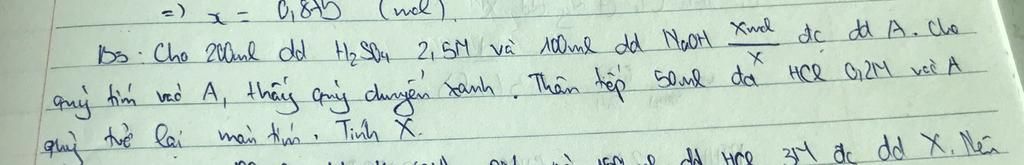 =) x = 0,875 (mol).
B5: Cho 200ml dd H₂SO₄ 2,5M và 100ml dd NaOH Xmol/X đc dd A. Cho
quỳ tím vào A, thấy quỳ chuyển xanh. Thân tiếp 50ml dd HCl 0,2M vào A
quỳ trở lại màn tím. Tính X.
dd HCl 3M đc dd X. Nên